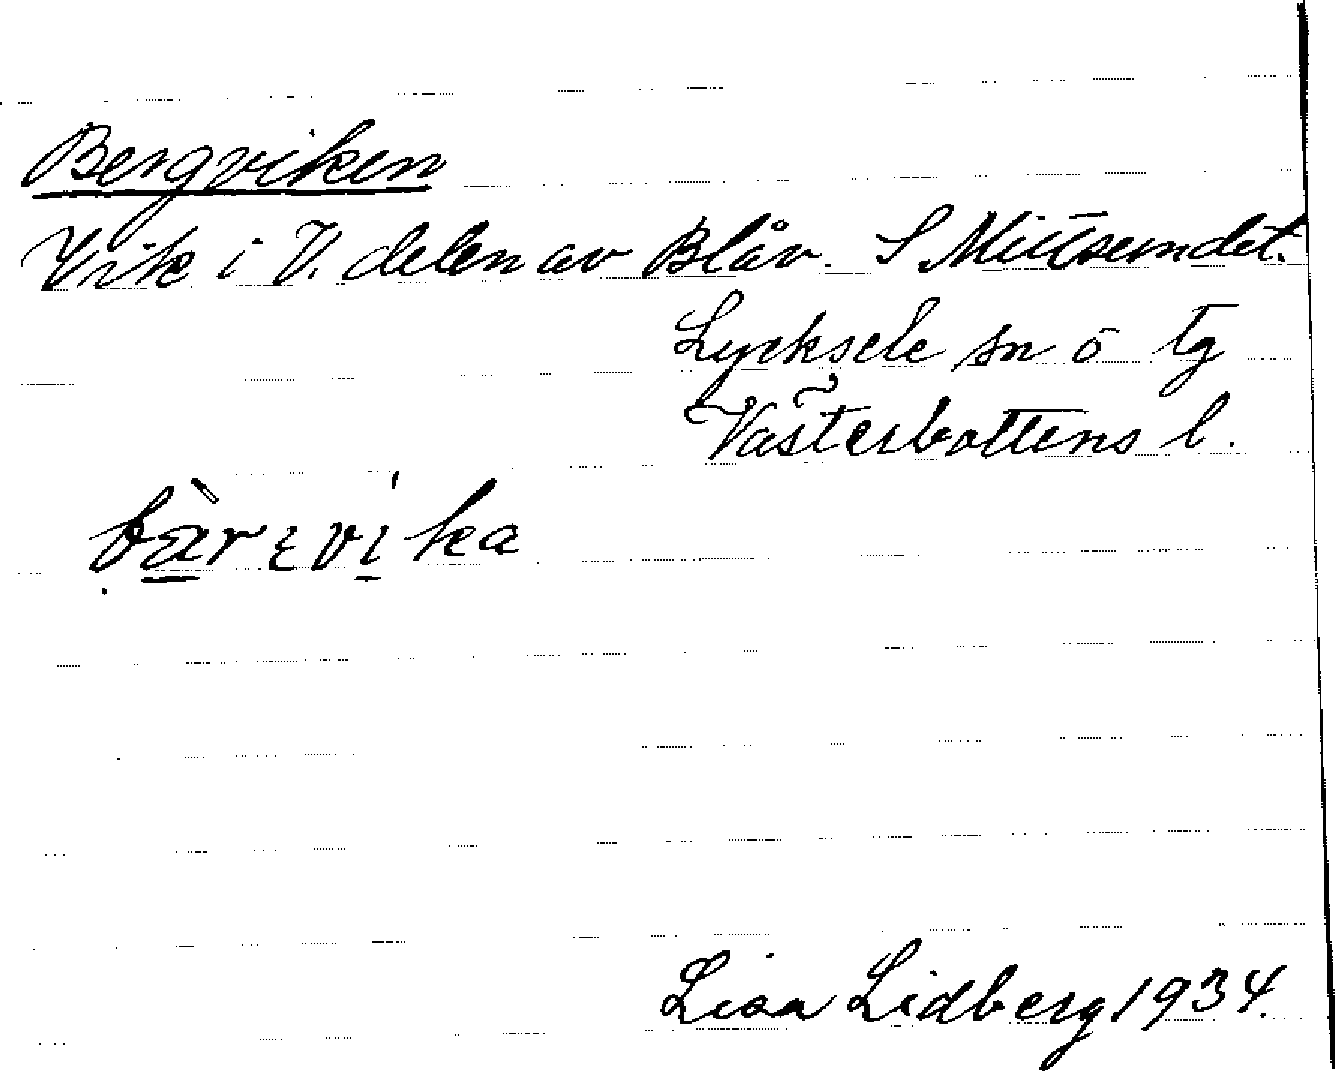 Bergviken
Vik i V. delen av Blåv. S Mittsundet.
Lycksele sn o tg
Västerbottens l.
bæ̀rɩvi̍ka
Lisa Lidberg 1934.